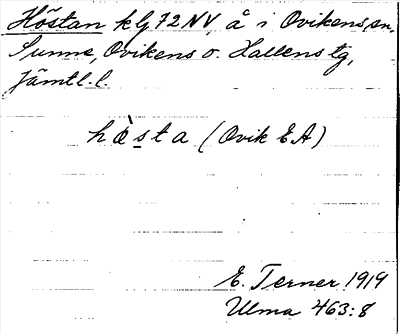 Höstan klg 72 NV, å i Ovikens sn.
Sunne, Ovikens o. Hallens tg,
Jämtl. l.
hæ̀sta (Ovik EA)
E. Terner 1919
Ulma 463:8